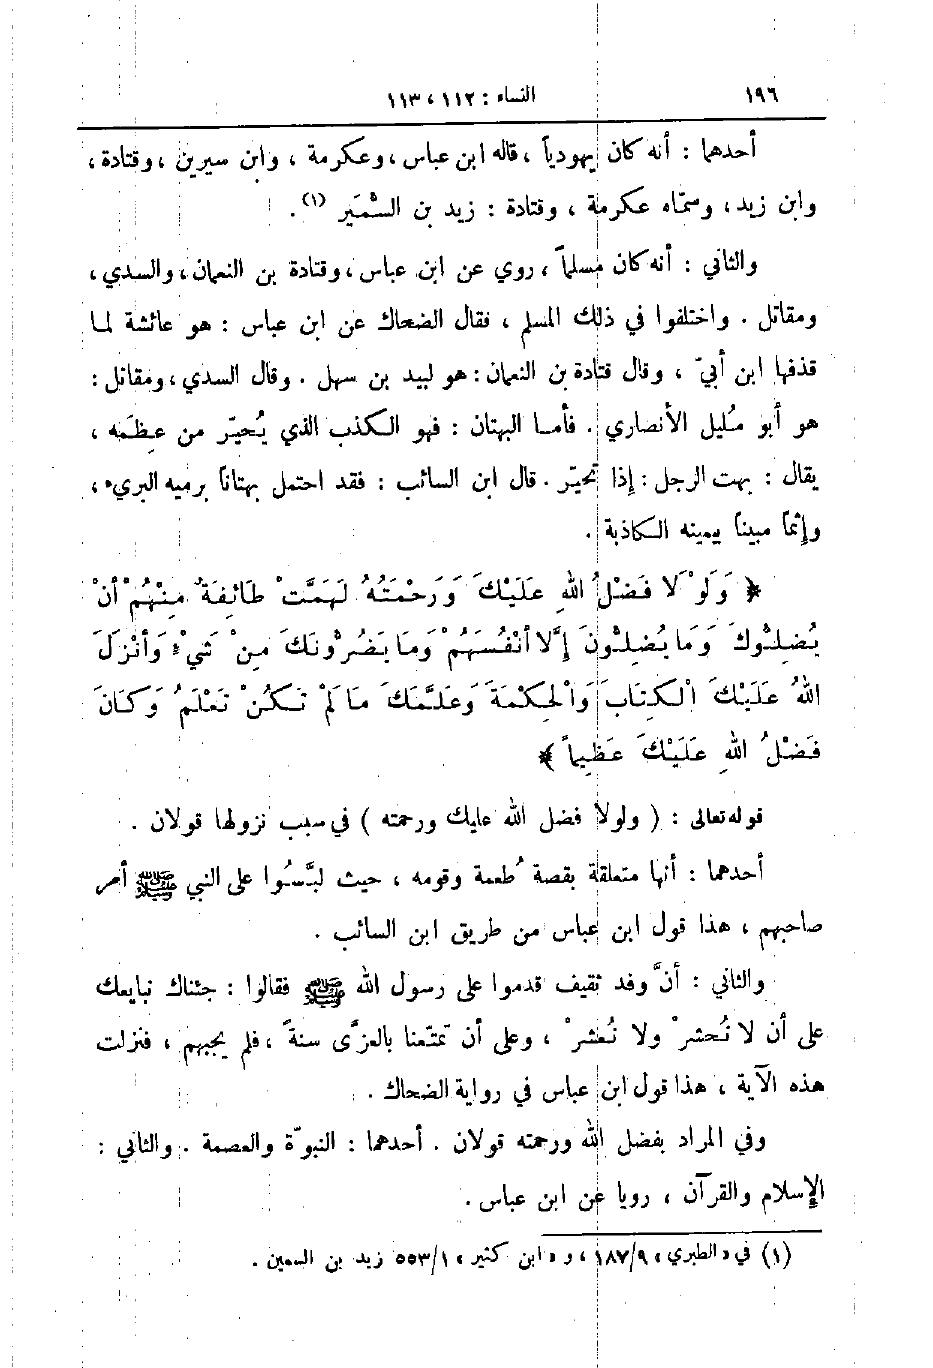 ١٩٦ النساء : ١١٢ ، ١١٣
أحدهما : أنه كان يهودياً ، قاله ابن عباس ، وعكرمة ، وابن سيرين ، وقتادة ،
وابن زيد ، وسمّاه عكرمة ، وقتادة : زيد بن السُّمَير (١) .
والثاني : أنه كان مسلماً ، روي عن ابن عباس ، وقتادة بن النعمان ، والسدي ،
ومقاتل . واختلفوا في ذلك المسلم ، فقال الضحاك عن ابن عباس : هو عائشة لما
قذفها ابن أبيّ ، وقال قتادة بن النعمان : هو لبيد بن سهل . وقال السدي ، ومقاتل :
هو أبو مُليل الأنصاري . فأما البهتان : فهو الكذب الذي يُحيّر من عِظَمه ،
يقال : بهت الرجل : إذا تحيّر . قال ابن السائب : فقد احتمل بهتاناً برميه البريء ،
وإثماً مبيناً بيمينه الكاذبة .
﴿ وَلَوْلَا فَضْلُ اللهِ عَلَيْكَ وَرَحْمَتُهُ لَهَمَّتْ طَائِفَةٌ مِنْهُمْ أَنْ
يُضِلُّوكَ وَمَا يُضِلُّونَ إِلَّا أَنْفُسَهُمْ وَمَا يَضُرُّونَكَ مِنْ شَيْءٍ وَأَنْزَلَ
اللهُ عَلَيْكَ الْكِتَابَ وَالْحِكْمَةَ وَعَلَّمَكَ مَا لَمْ تَكُنْ تَعْلَمُ وَكَانَ
فَضْلُ اللهِ عَلَيْكَ عَظِيماً ﴾
قوله تعالى : ( ولولا فضل الله عليك ورحمته ) في سبب نزولها قولان .
أحدهما : أنها متعلقة بقصة طُعمة وقومه ، حيث لبَّسُوا على النبي ﷺ أمر
صاحبهم ، هذا قول ابن عباس من طريق ابن السائب .
والثاني : أنَّ وفد ثقيف قدموا على رسول الله ﷺ فقالوا : جئناك نبايعك
على أن لا نُحشرْ ولا نُعشرْ ، وعلى أن تمتّعنا بالعزَّى سنةً ، فلم يجبهم ، فنزلت
هذه الآية ، هذا قول ابن عباس في رواية الضحاك .
وفي المراد بفضل الله ورحمته قولان . أحدهما : النبوّة والعصمة . والثاني :
الإسلام والقرآن ، رويا عن ابن عباس .
(١) في « الطبري » ١٨٧/٩ ، و « ابن كثير » ٥٥٣/١ زيد بن السمين .